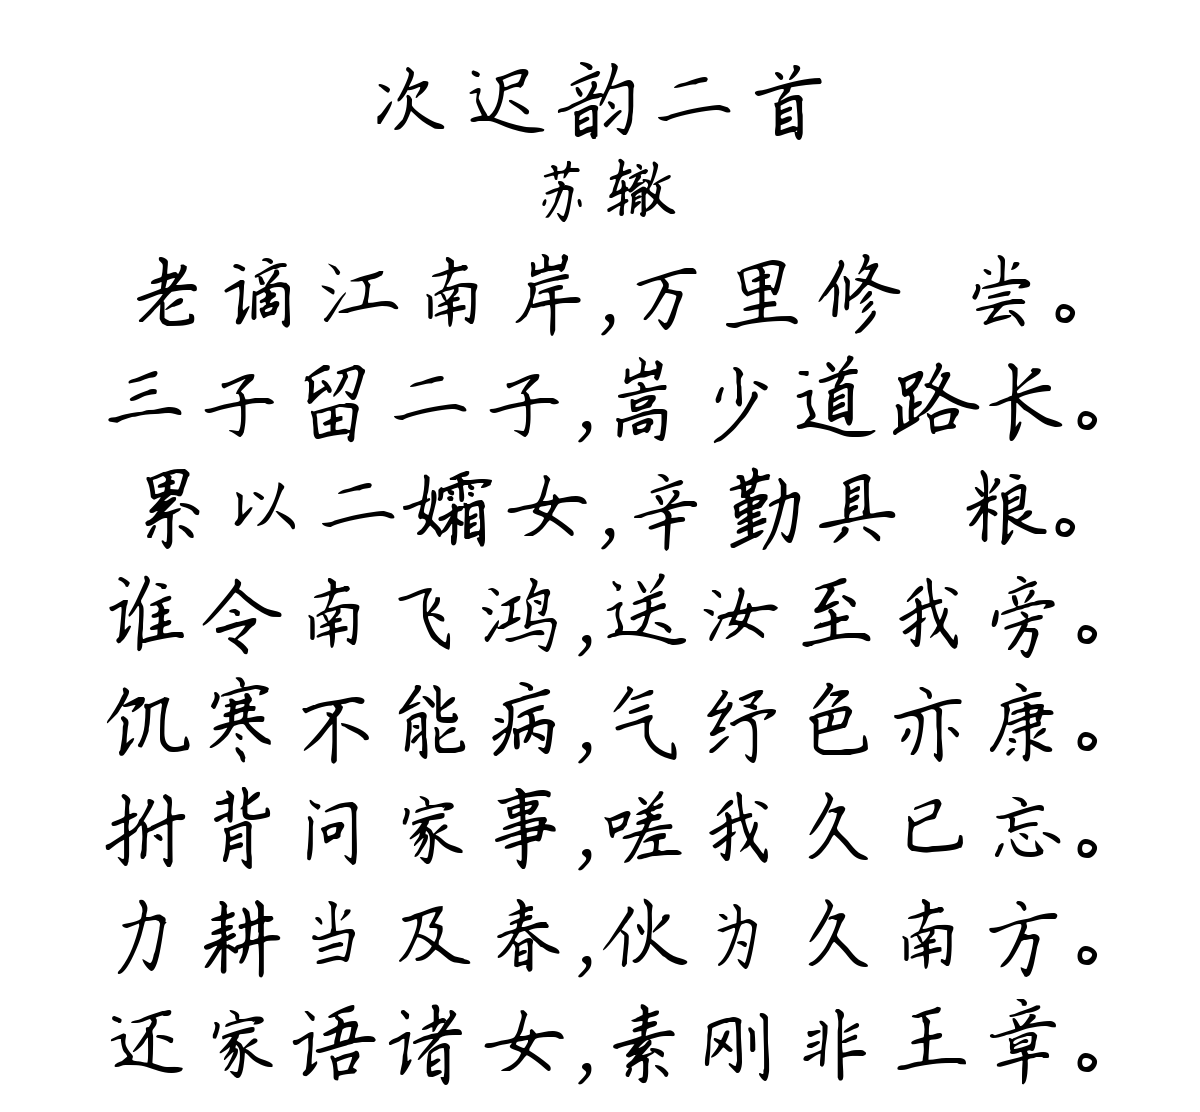 次迟韵二首
苏辙
老谪江南岸,万里修 尝。
三子留二子,嵩少道路长。
累以二孀女,辛勤具 粮。
谁令南飞鸿,送汝至我旁。
饥寒不能病,气纾色亦康。
拊背问家事,嗟我久已忘。
力耕当及春,伙为久南方。
还家语诸女,素刚非王章。